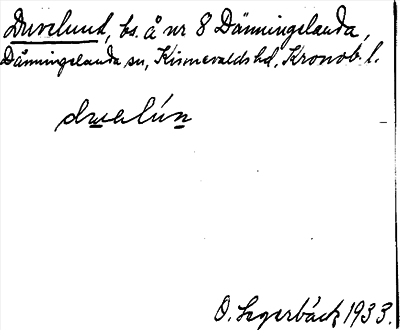 Duvelund, bs. å nr 8 Dänningslanda,
Dänningelanda sn, Kinnevalds hd, Kronob. l.
duvalún
O. Segerbäck 1933.